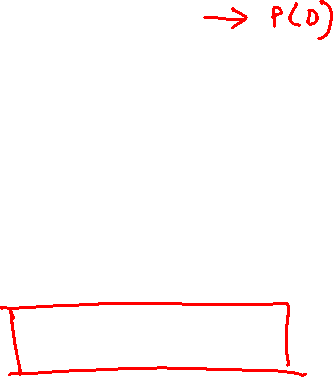 → P(D)